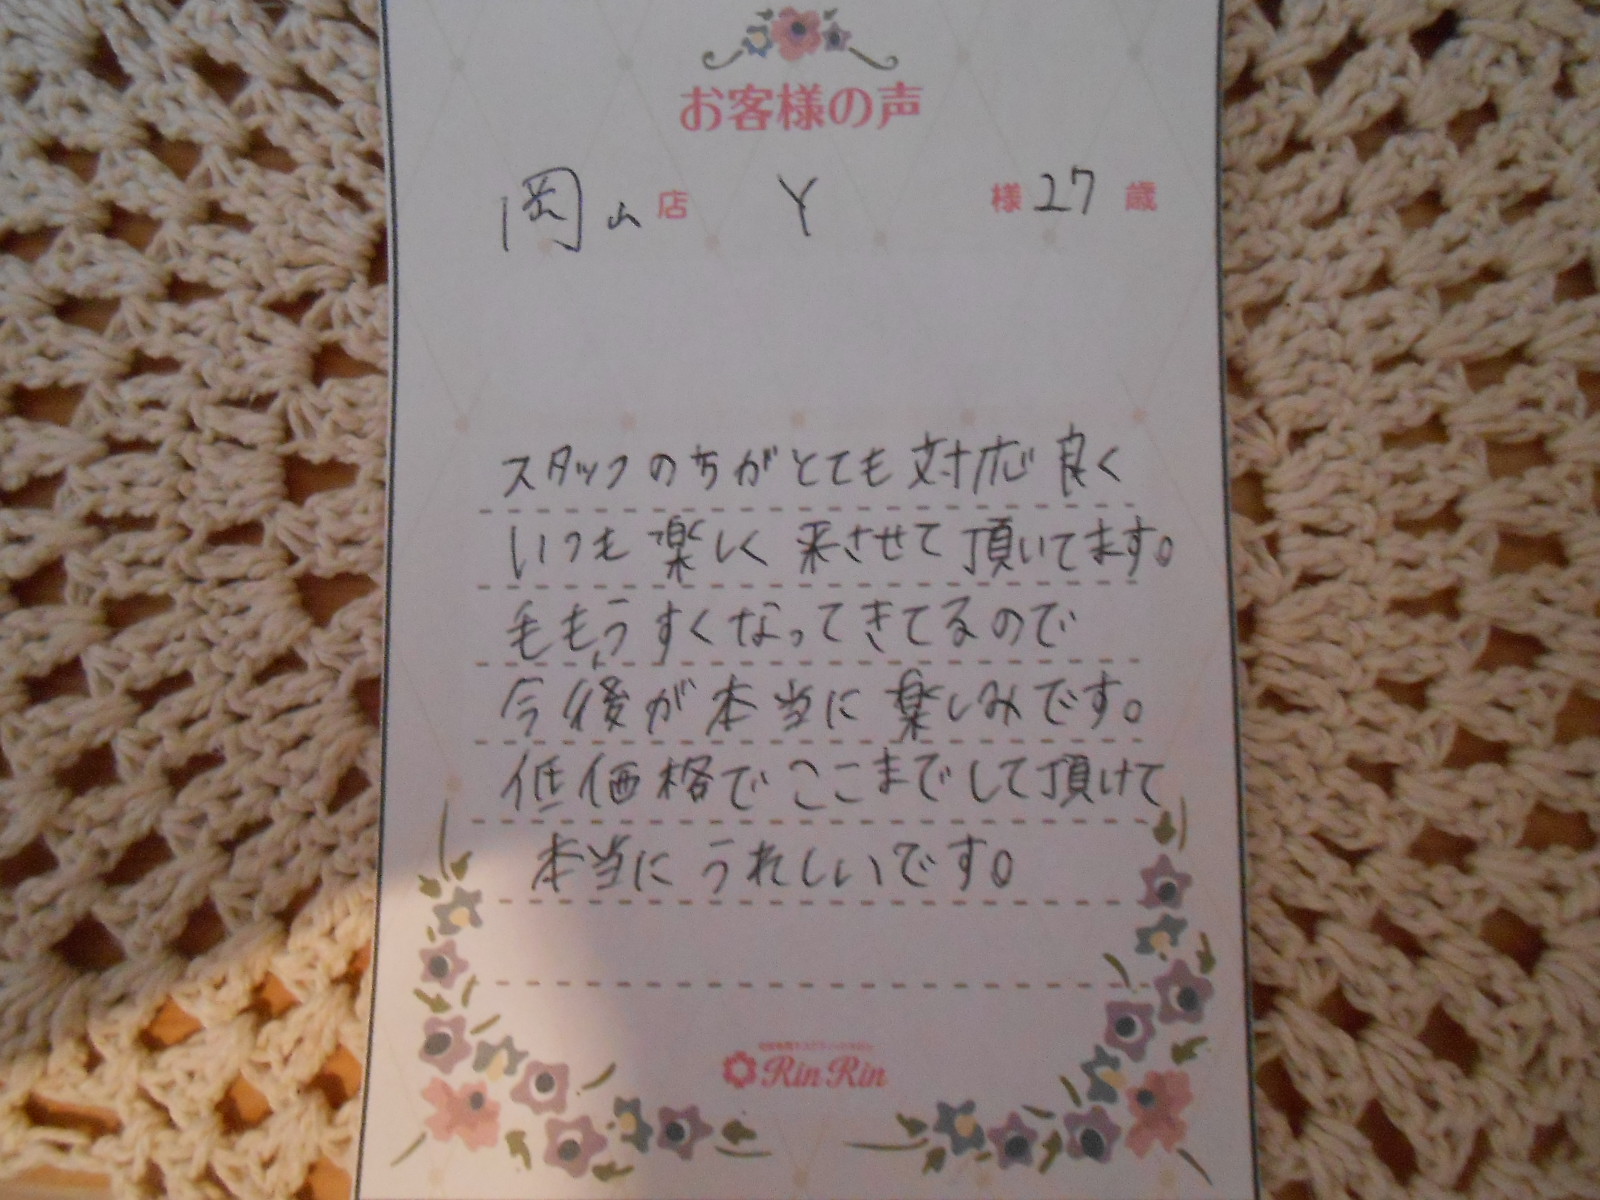 お客様の声
岡山店 Y 様 27 歳
スタッフの方がとても対応良く
いつも楽しく来させて頂いてます。
毛もうすくなってきてるので
今後が本当に楽しみです。
低価格でここまでして頂けて
本当にうれしいです。
RinRin